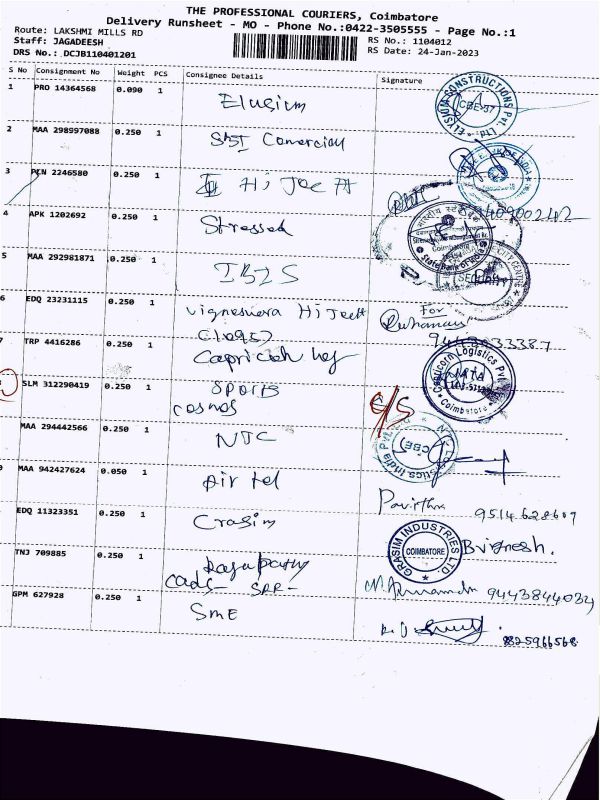 THE PROFESSIONAL COURIERS, Coimbatore
Delivery Runsheet - MO - Phone No.:0422-3505555 - Page No.:1
Route: LAKSHMI MILLS RD
RS No.: 1104012
Staff: JAGADEESH
RS Date: 24-Jan-2023
DRS No.: DCJB110401201
S No Consignment No Weight PCS Consignee Details Signature
1 PRO 14364568 0.090 1 Elusium
ELYSIUM CONSTRUCTIONS PVT. LTD. CBE-37
2 MAA 298997088 0.250 1 SBI Comercial
3 PEN 2246580 0.250 1 Hi Tec
9409002142
4 APK 1202692 0.250 1 Stressed
State Bank of India
Coimbatore
5 MAA 292981871 0.250 1
CITY CENTRE
6 EDQ 23231115 0.250 1 Vigneswera Hi Tech
For
9443033387
7 TRP 4416286 0.250 1 Capricorn log
Capricorn Logistics Pvt. Ltd
Coimbatore
8 SLM 312290419 0.250 1 Sports
cosmos
MAA 294442566 0.250 1 NTC
NTC Logistics India Pvt
(CBE)
MAA 942427624 0.050 1 Air tel
Pavithra 9514628609
EDQ 11323351 0.250 1 Crasim
GRASIM INDUSTRIES LTD
COIMBATORE
B. Vignesh.
TNJ 709885 0.250 1
cads SRR-
9443844034
GPM 627928 0.250 1 SME
8825966568